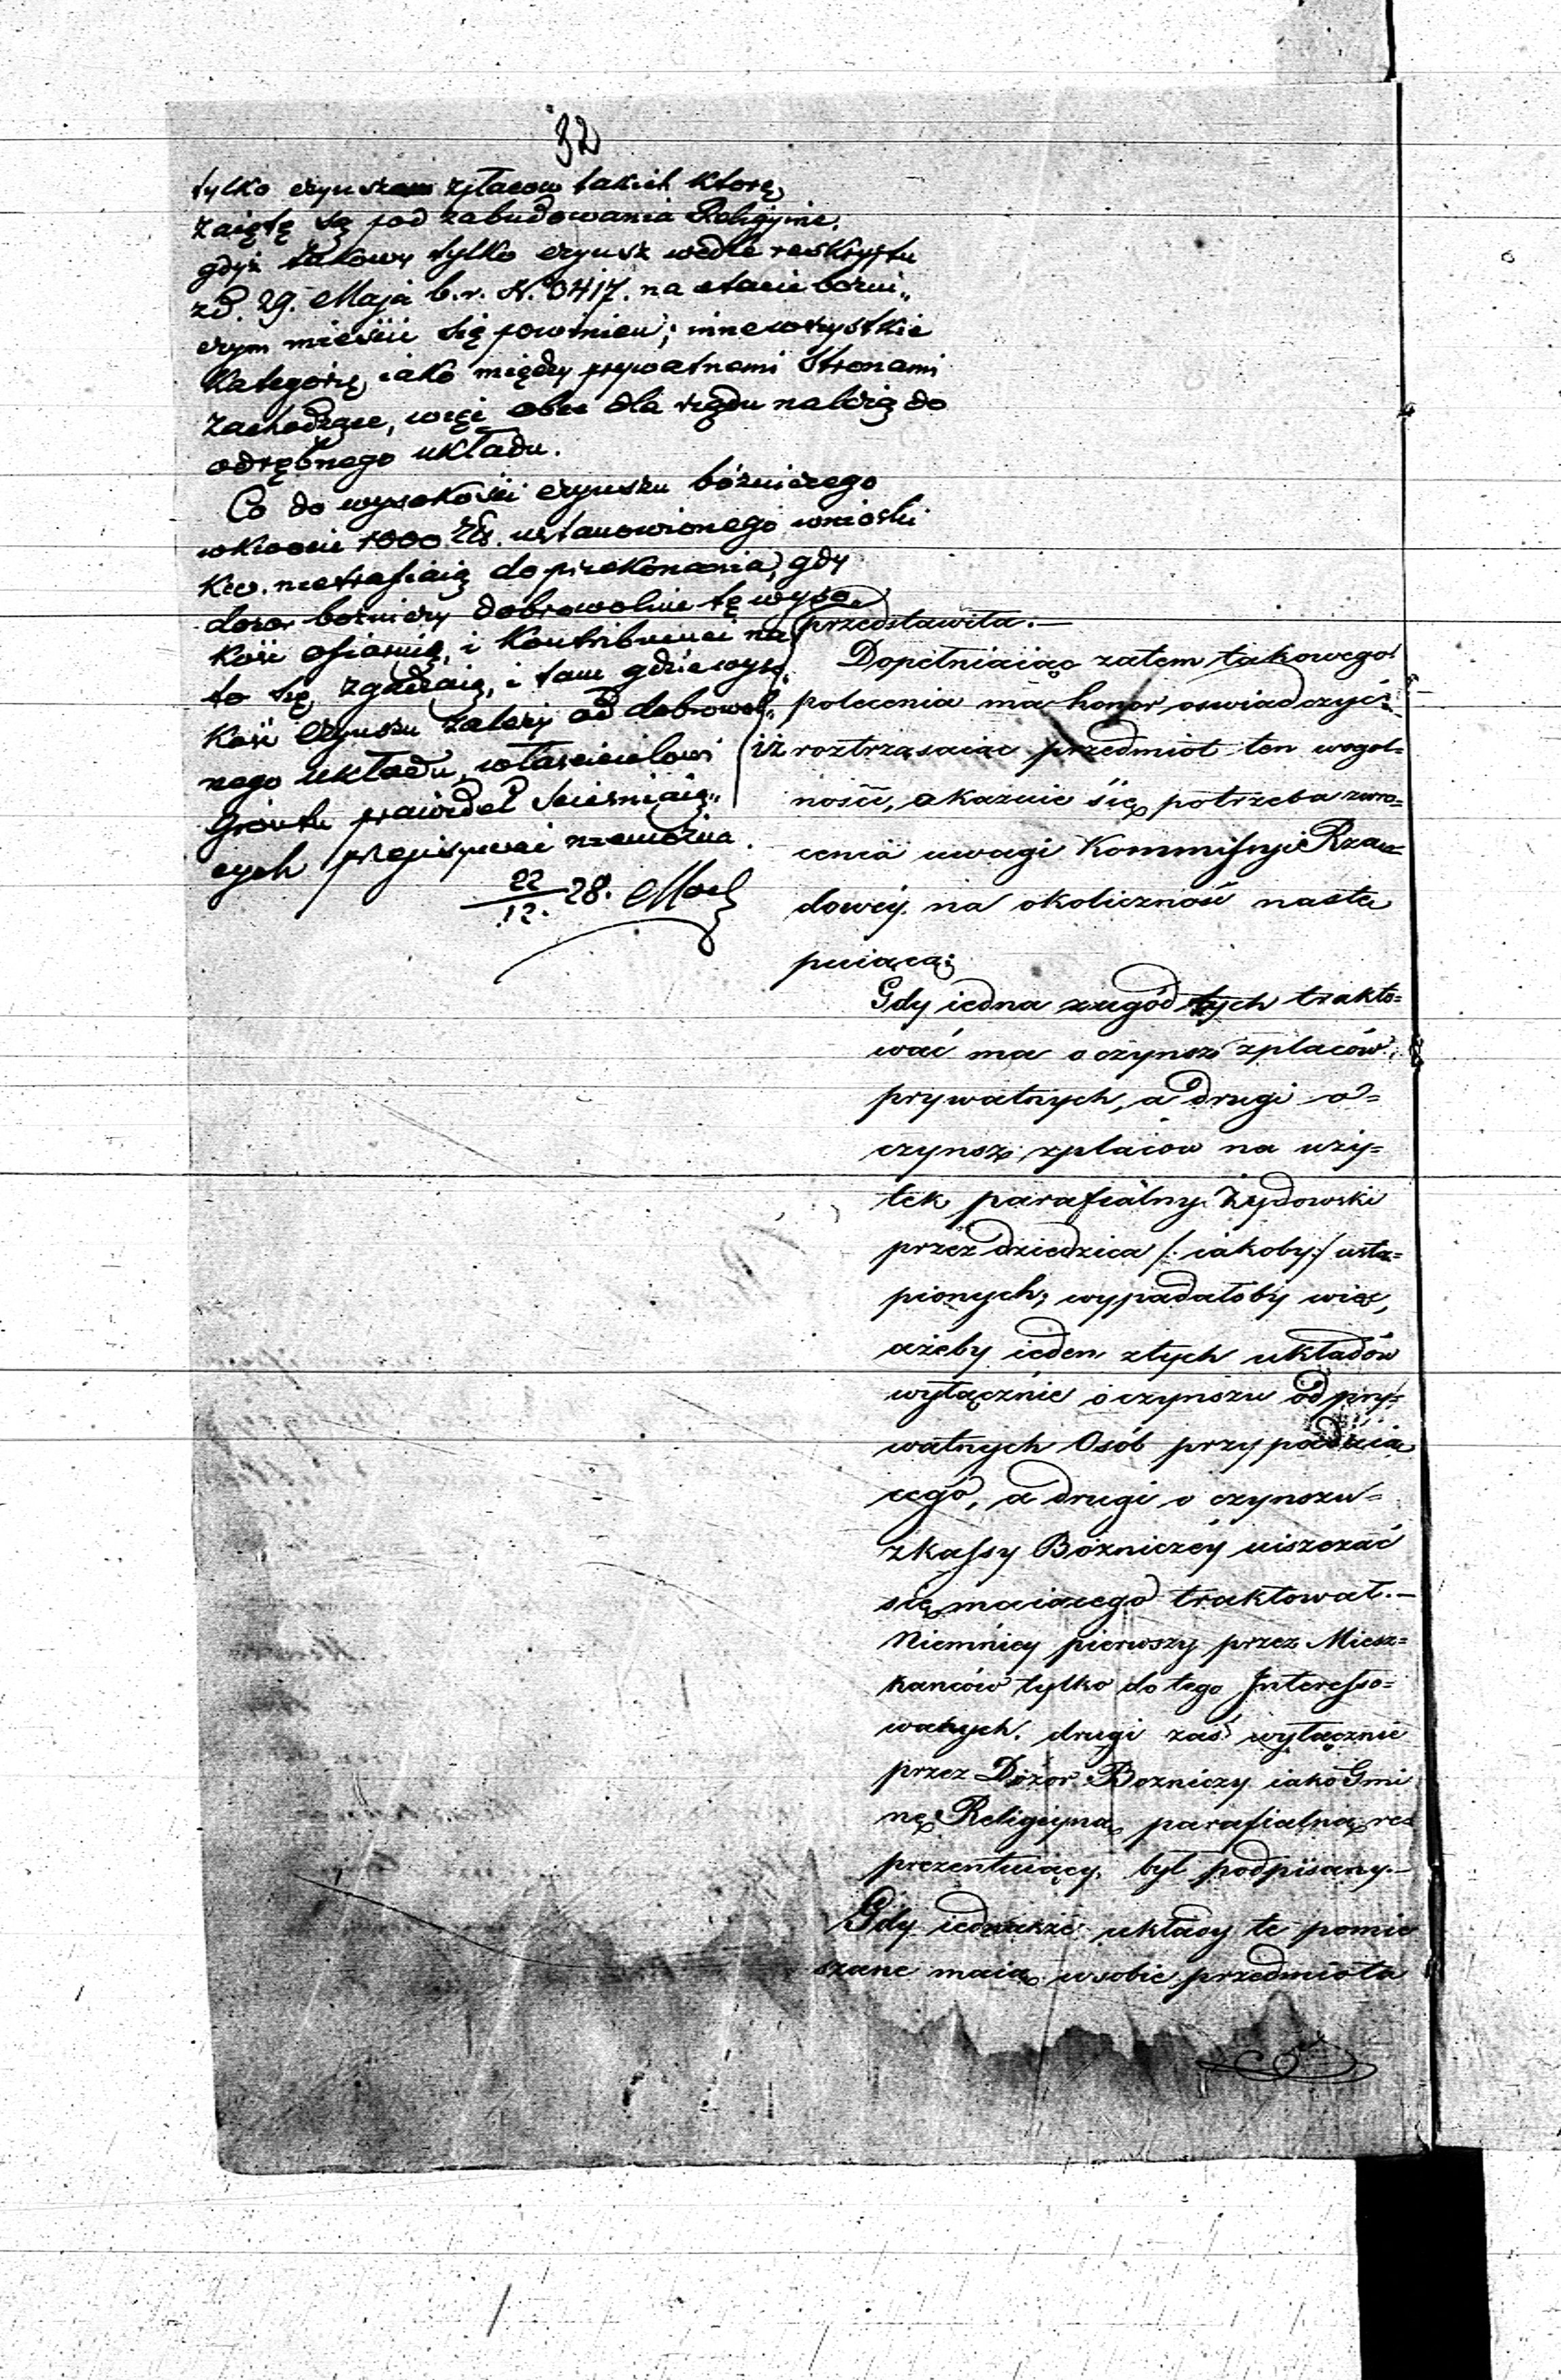 32
tylko czynsz zplacow takich ktore
zaięte są pod zabudowania Religijne,
gdyż takowy tylko czynsz wedle reskryptu
zd. 29. Maja b.r. N. 8417. na etacie bożni„
czym mieścić się powinien; inne wszystkie
Kategorye, iako między prywatnemi Stronami
Zachodzące, więc obce dla rządu należą do
odrębnego układu.
Co do wysokości czynszu bożniczego
wkwocie 1000 Złt. ustanowionego wnioski
Kw. nietrafiaią do przekonania, gdy
dozor bożniczy dobrowolnie tę wyso„
kość ofiaruie, i Kontribuenci na
to się zgadzaią, i tam gdzie wyso„
kość Czynszu zależy od dobrowol„
nego układu, właścicielowi
Gruntu prawideł ścieśniaią„
cych przepisywać niemożna.
22/12. 28. 
przedstawiła.—
Dopełniaiąc zatem takowego
polecenia ma honor oswiadczyć:
iż roztrząsaiąc przedmiot ten wogol=
ności, okazuie się potrzeba zwro=
cenia uwagi Kommissyi Rzą=
dowéy na okoliczność nastę
puiącą:
Gdy iedna zugód tych trakto=
wać ma o czynsz zplaców
prywatnych, a drugi o=
czynsz zplaców na uży=
tek parafialny Żydowski
przez dziedzica /: iakoby:/ ustą=
pionych; wypadałoby więc,
ażeby ieden ztych układów
wyłącznie o czynszu od pry=
watnych Osób przypadaią
cego, a drugi o czynszu=
zkassy Bożniczéy uiszczać
się maiącego traktował.—
Niemniéy pierwszy przez Miesz=
kanców tylko do tego Interesso=
wanych. drugi zaś wyłącznie
przez Dozor Bożniczy iako Gmi
nę Religiyną parafialną re=
prezentuiący, był podpisany.—
Gdy iednakże układy te pomie
szane maią wsobie przedmiota